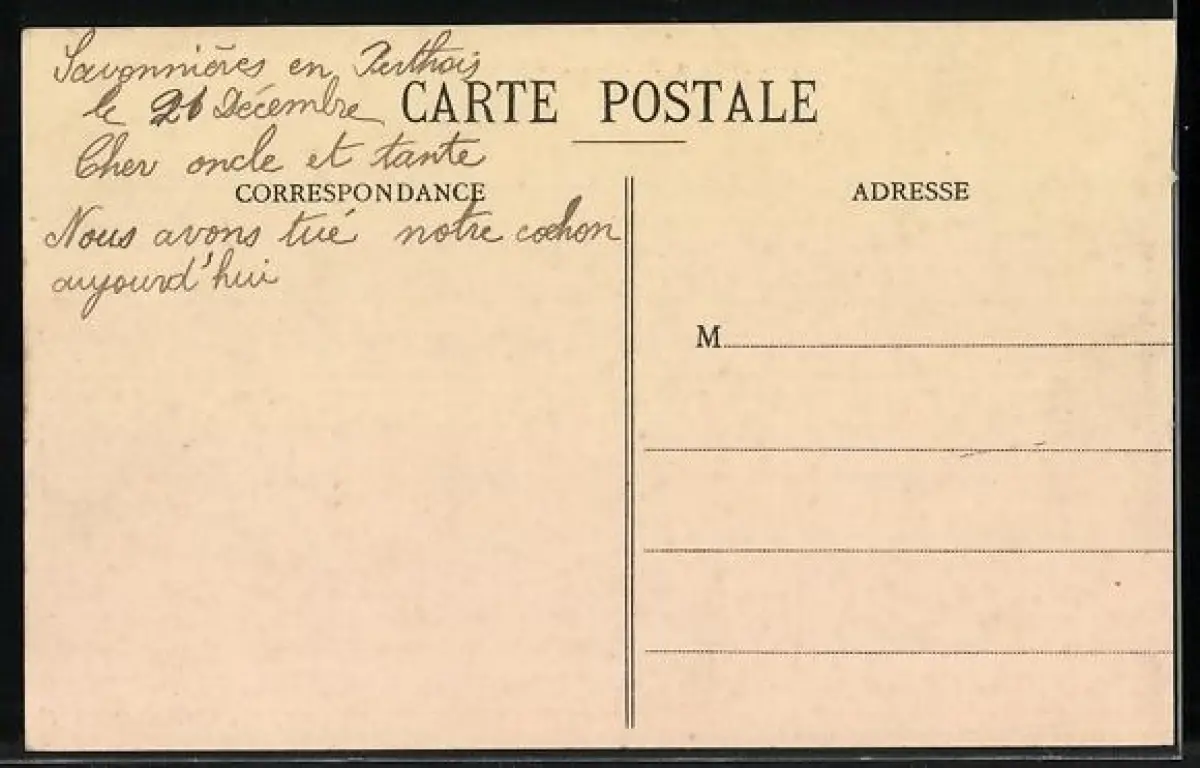 Savonnières en Perthois
le 21 Décembre
CARTE POSTALE
Cher oncle et tante
CORRESPONDANCE
ADRESSE
Nous avons tué notre cochon
aujourd'hui
M